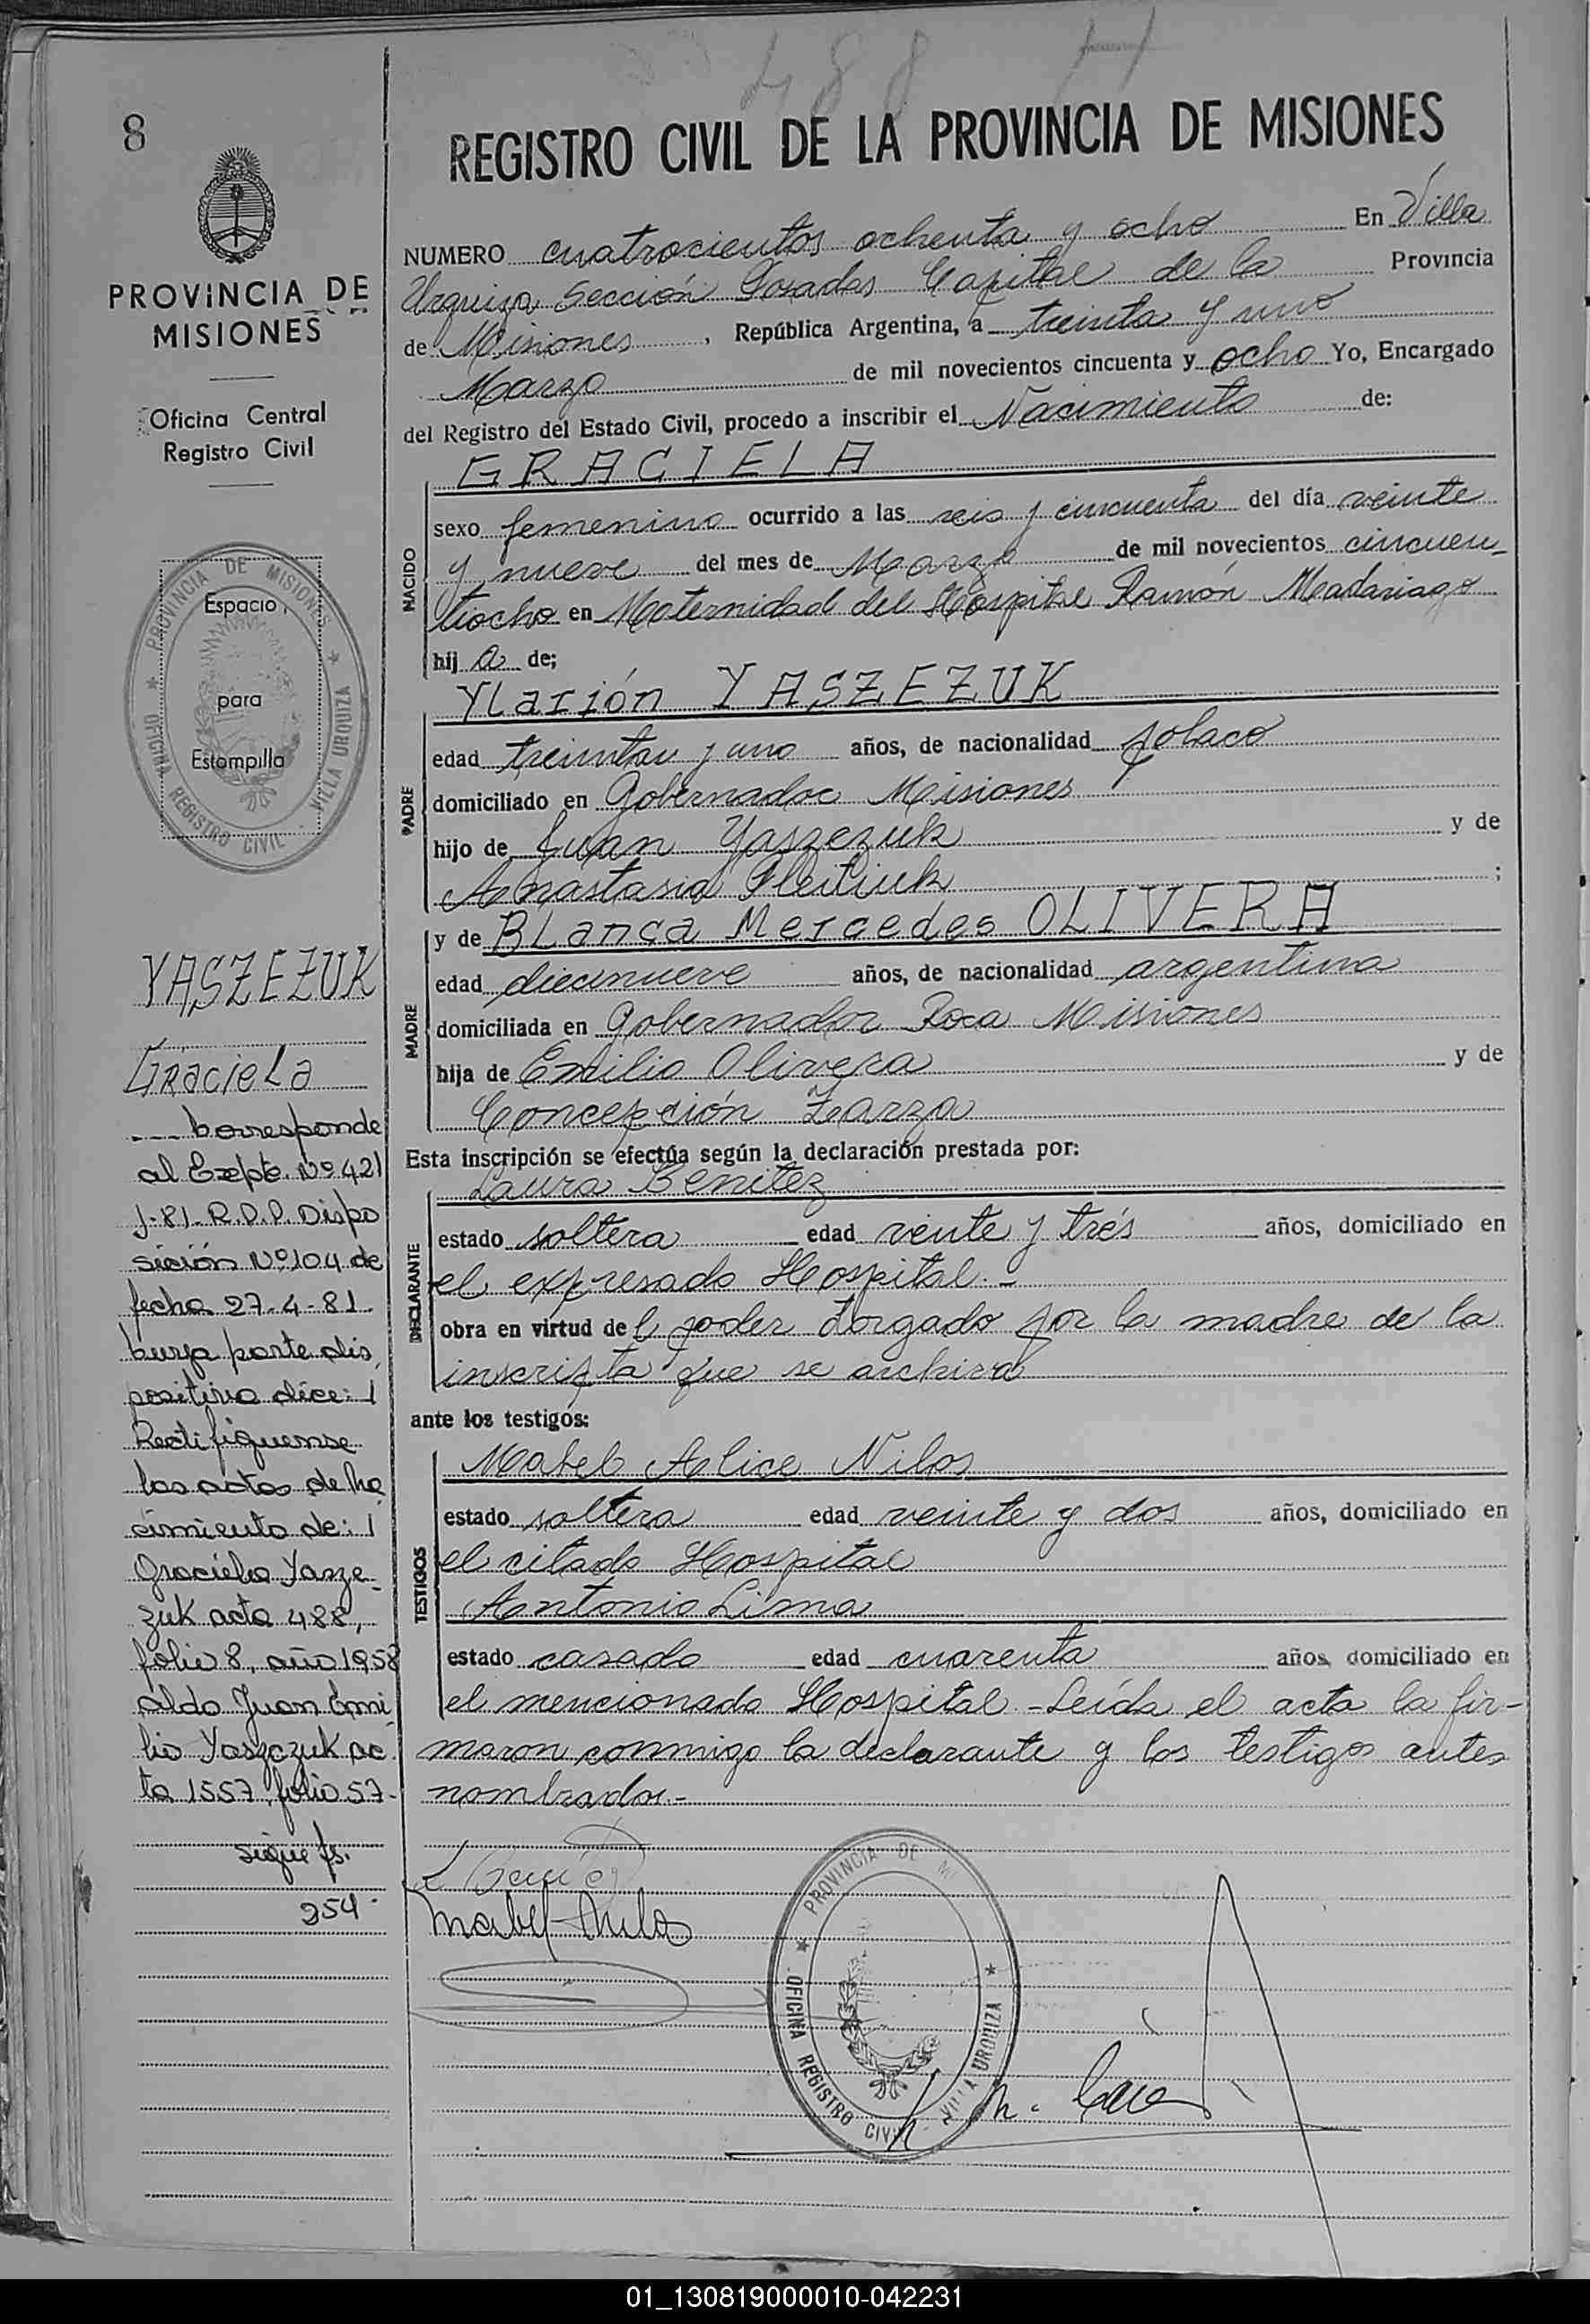 488
8
PROVINCIA DE
MISIONES
Oficina Central
Registro Civil
PROVINCIA DE MISIONES
OFICINA REGISTRO CIVIL - VILLA URQUIZA
Espacio
para
Estampilla
YASZEZUK
Graciela
---- Corresponde
al Expte. Nº 421
J-81-R.D.P. Dispo
sición Nº 104 de
fecha 27-4-81.
cuya parte dis
positiva dice: 1
Rectifiquense
las actas de Na
cimiento de: 1
Graciela Yasze-
zuk acta 488,
folio 8, año 1958
Aldo Juan Emi
lio Yaszczuk ac
ta 1557, folio 57-
sigue fs.
254-
REGISTRO CIVIL DE LA PROVINCIA DE MISIONES
NUMERO cuatrocientos ochenta y ocho En Villa
Urquiza Sección Posadas Capital de la Provincia
de Misiones, República Argentina, a treinta y uno
Marzo de mil novecientos cincuenta y ocho Yo, Encargado
del Registro del Estado Civil, procedo a inscribir el Nacimiento de:
GRACIELA
NACIDO
sexo femenino ocurrido a las seis y cincuenta del día veinte
y nueve del mes de Marzo de mil novecientos cincuen-
tiocho en Maternidad del Hospital Ramón Madariaga
hij a de;
Ylarión YASZEZUK
PADRE
edad treinta y uno años, de nacionalidad polaco
domiciliado en Gobernador Misiones
hijo de Juan Yaszezuk y de
Anastasia ;
MADRE
y de Blanca Mercedes OLIVERA
edad diecinueve años, de nacionalidad argentina
domiciliada en Gobernador Roca Misiones
hija de Emilio Olivera y de
Concepción Zarza
Esta inscripción se efectúa según la declaración prestada por:
Laura Benitez
DECLARANTE
estado soltera edad veinte y trés años, domiciliado en
el expresado Hospital.-
obra en virtud del poder otorgado por la madre de la
inscripta que se archiva
ante los testigos:
Mabel Alice Nilos
TESTIGOS
estado soltera edad veinte y dos años, domiciliado en
el citado Hospital
Antonio Lima
estado casado edad cuarenta años domiciliado en
el mencionado Hospital - Leída el acta la fir-
maron conmigo la declarante y los testigos antes
nombrados.-
PROVINCIA DE MI
OFICINA REGISTRO CIVIL - VILLA URQUIZA
01_130819000010-042231